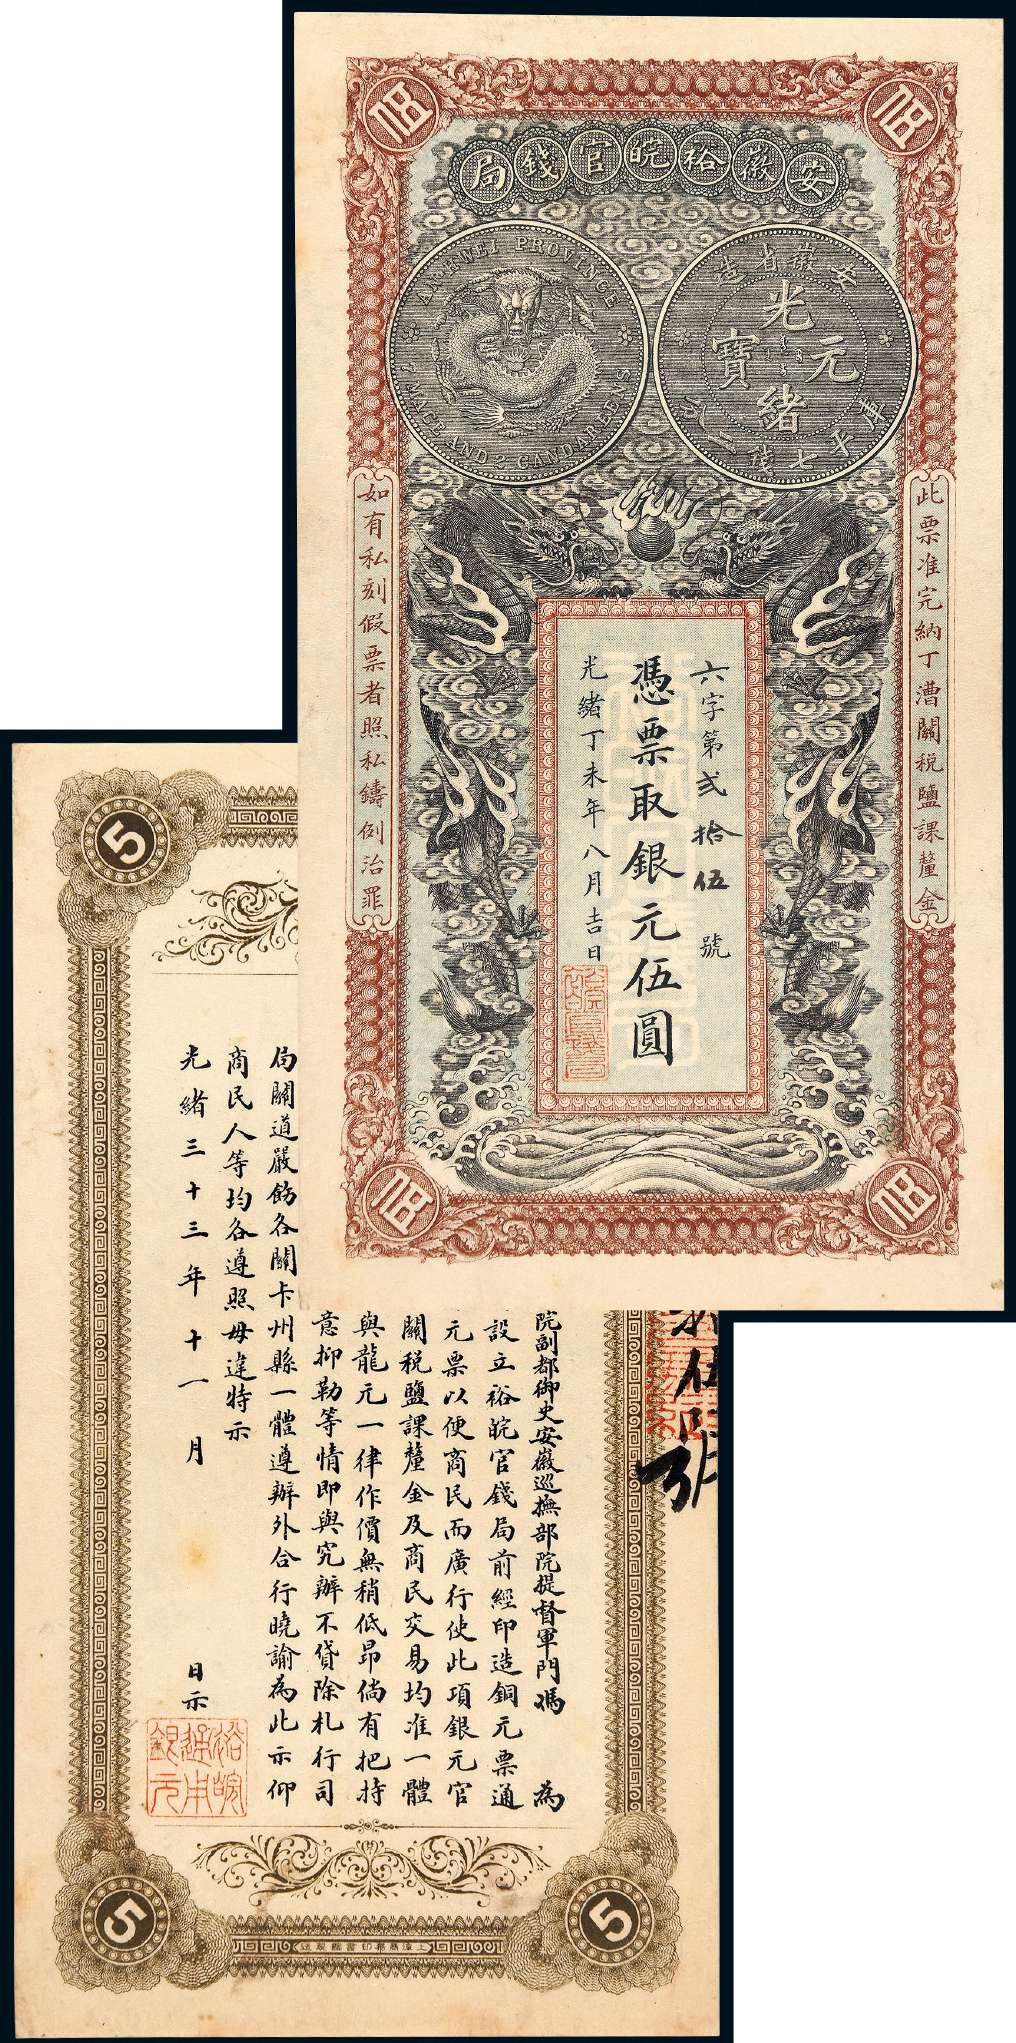 伍
伍
安徽裕皖官錢局
AN-HWEI PROVINCE
7 MACE AND 2 CANDAREENS
安徽省造
光緒元寶
庫平七錢二分
此票准完納丁漕關稅鹽課釐金
如有私刻假票者照私鑄例治罪
六字第弍拾伍號
憑票取銀元伍圓
光緒丁未年八月吉日
伍
伍
5
院副都御史安徽巡撫部院提督軍門馮 為
設立裕皖官錢局前經印造銅元票通
元票以便商民而廣行使此項銀元官
關稅鹽課釐金及商民交易均准一體
與龍元一律作價無稍低昂倘有把持
意抑勒等情即與究辦不貸除札行司
局關道嚴飭各關卡州縣一體遵辦外合行曉諭為此示仰
商民人等均各遵照毋違特示
光緒三十三年十一月 日示
裕皖
通用
銀元
伍號
5
5
上海商務印書館製造